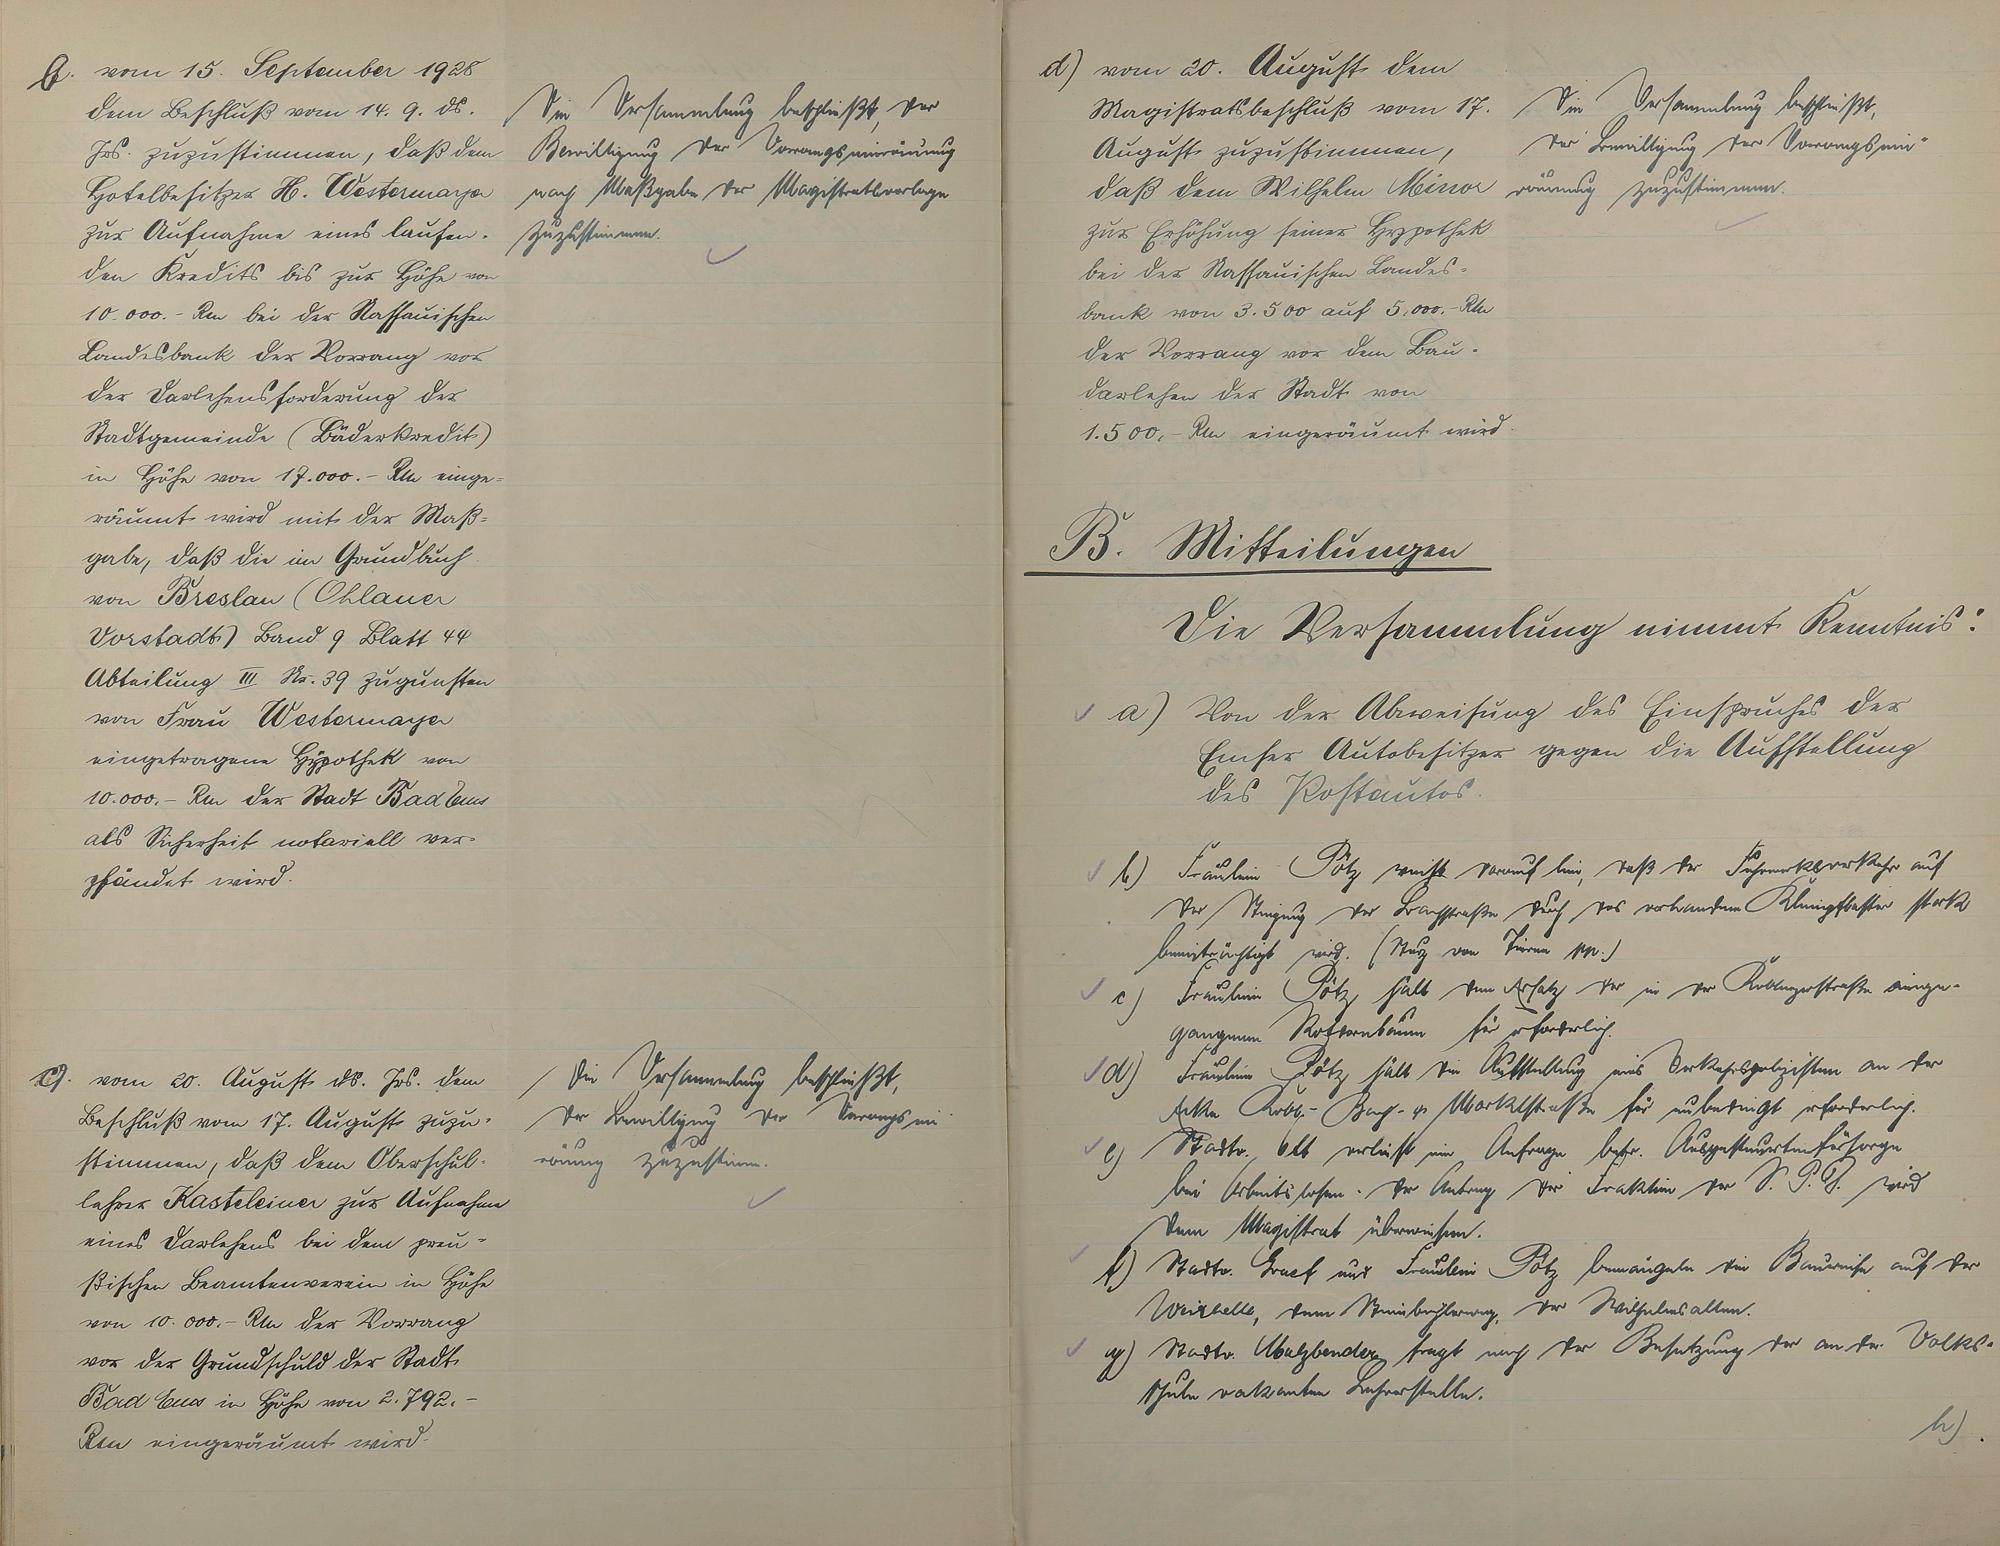 b. vom 15. September 1928
dem Beschluß vom 14. 9. ds.
Js. zuzustimmen, daß dem
Hotelbesitzer H. Westermayer
zur Aufnahme eines laufen-
den Kredits bis zur Höhe von
10.000.- Rm bei der Nassauischen
Landesbank der Vorrang vor
der Darlehensforderung der
Stadtgemeinde (Bäderkredit)
in Höhe von 17.000.- Rm einge-
räumt wird mit der Maß-
gabe, daß die im Grundbuch
von Breslau (Ohlauer
Vorstadt) Band 9 Blatt 44
Abteilung III Nr. 39 zugunsten
von Frau Westermayer
eingetragene Hypothek von
10.000.- Rm der Stadt Bad Ems
als Sicherheit notariell ver-
pfändet wird.
Die Versammlung beschließt, der
Bewilligung der Vorrangseinräumung
nach Maßgabe der Magistratsvorlage
zuzustimmen.
c). vom 20. August ds. Js. dem
Beschluß vom 17. August zuzu-
stimmen, daß dem Oberschul-
lehrer Kasteleiner zur Aufnahme
eines Darlehens bei dem preu-
ßischen Beamtenverein in Höhe
von 10.000.- Rm der Vorrang
vor der Grundschuld der Stadt
Bad Ems in Höhe von 2.792.-
Rm eingeräumt wird.
Die Versammlung beschließt,
der Bewilligung der Vorrangsein
räumung zuzustimm.
d) vom 20. August dem
Magistratsbeschluß vom 17.
August zuzustimmen,
daß dem Wilhelm Minor
zur Erhöhung seiner Hypothek
bei der Nassauischen Landes-
bank von 3.500 auf 5.000.- Rm
der Vorrang vor dem Bau-
darlehen der Stadt von
1.500.- Rm eingeräumt wird.
Die Versammlung beschließt,
der Bewilligung der Vorrangsein-
räumung zuzustimmen.
B. Mitteilungen
Die Versammlung nimmt Kenntnis:
a) Von der Abweisung des Einspruches der
Emser Autobesitzer gegen die Aufstellung
des Postautos.
b) Fräulein Pötz weist darauf hin, daß der Fuhrwerksverkehr auf
der Steigung der Bachstraße durch das vorhandene Kleinpflaster stark
beeinträchtigt wird. (Sturz von Tieren pp.)
c) Fräulein Pötz hält den Ersatz der in der Koblenzerstraße einge-
gangenen Rotdornbäume für erforderlich.
d) Fräulein Pötz hält die Aufstellung eines Verkehrspolizisten an der
Ecke Kobl.- Bach- u. Marktstraße für unbedingt erforderlich.
e) Stadtv. Olt verliest eine Anfrage betr. Ausgesteuertenfürsorge
bei Arbeitslosen. Der Antrag der Fraktion der S. P. D. wird
dem Magistrat überwiesen.
f) Stadtv. Graef und Fräulein Pötz bemängeln die Bauweise auf der
dem der Wilhelmsallee.
g) Stadtv. Malzbender fragt nach der Besetzung der an der Volks-
schule vakanten Lehrerstelle.
h).